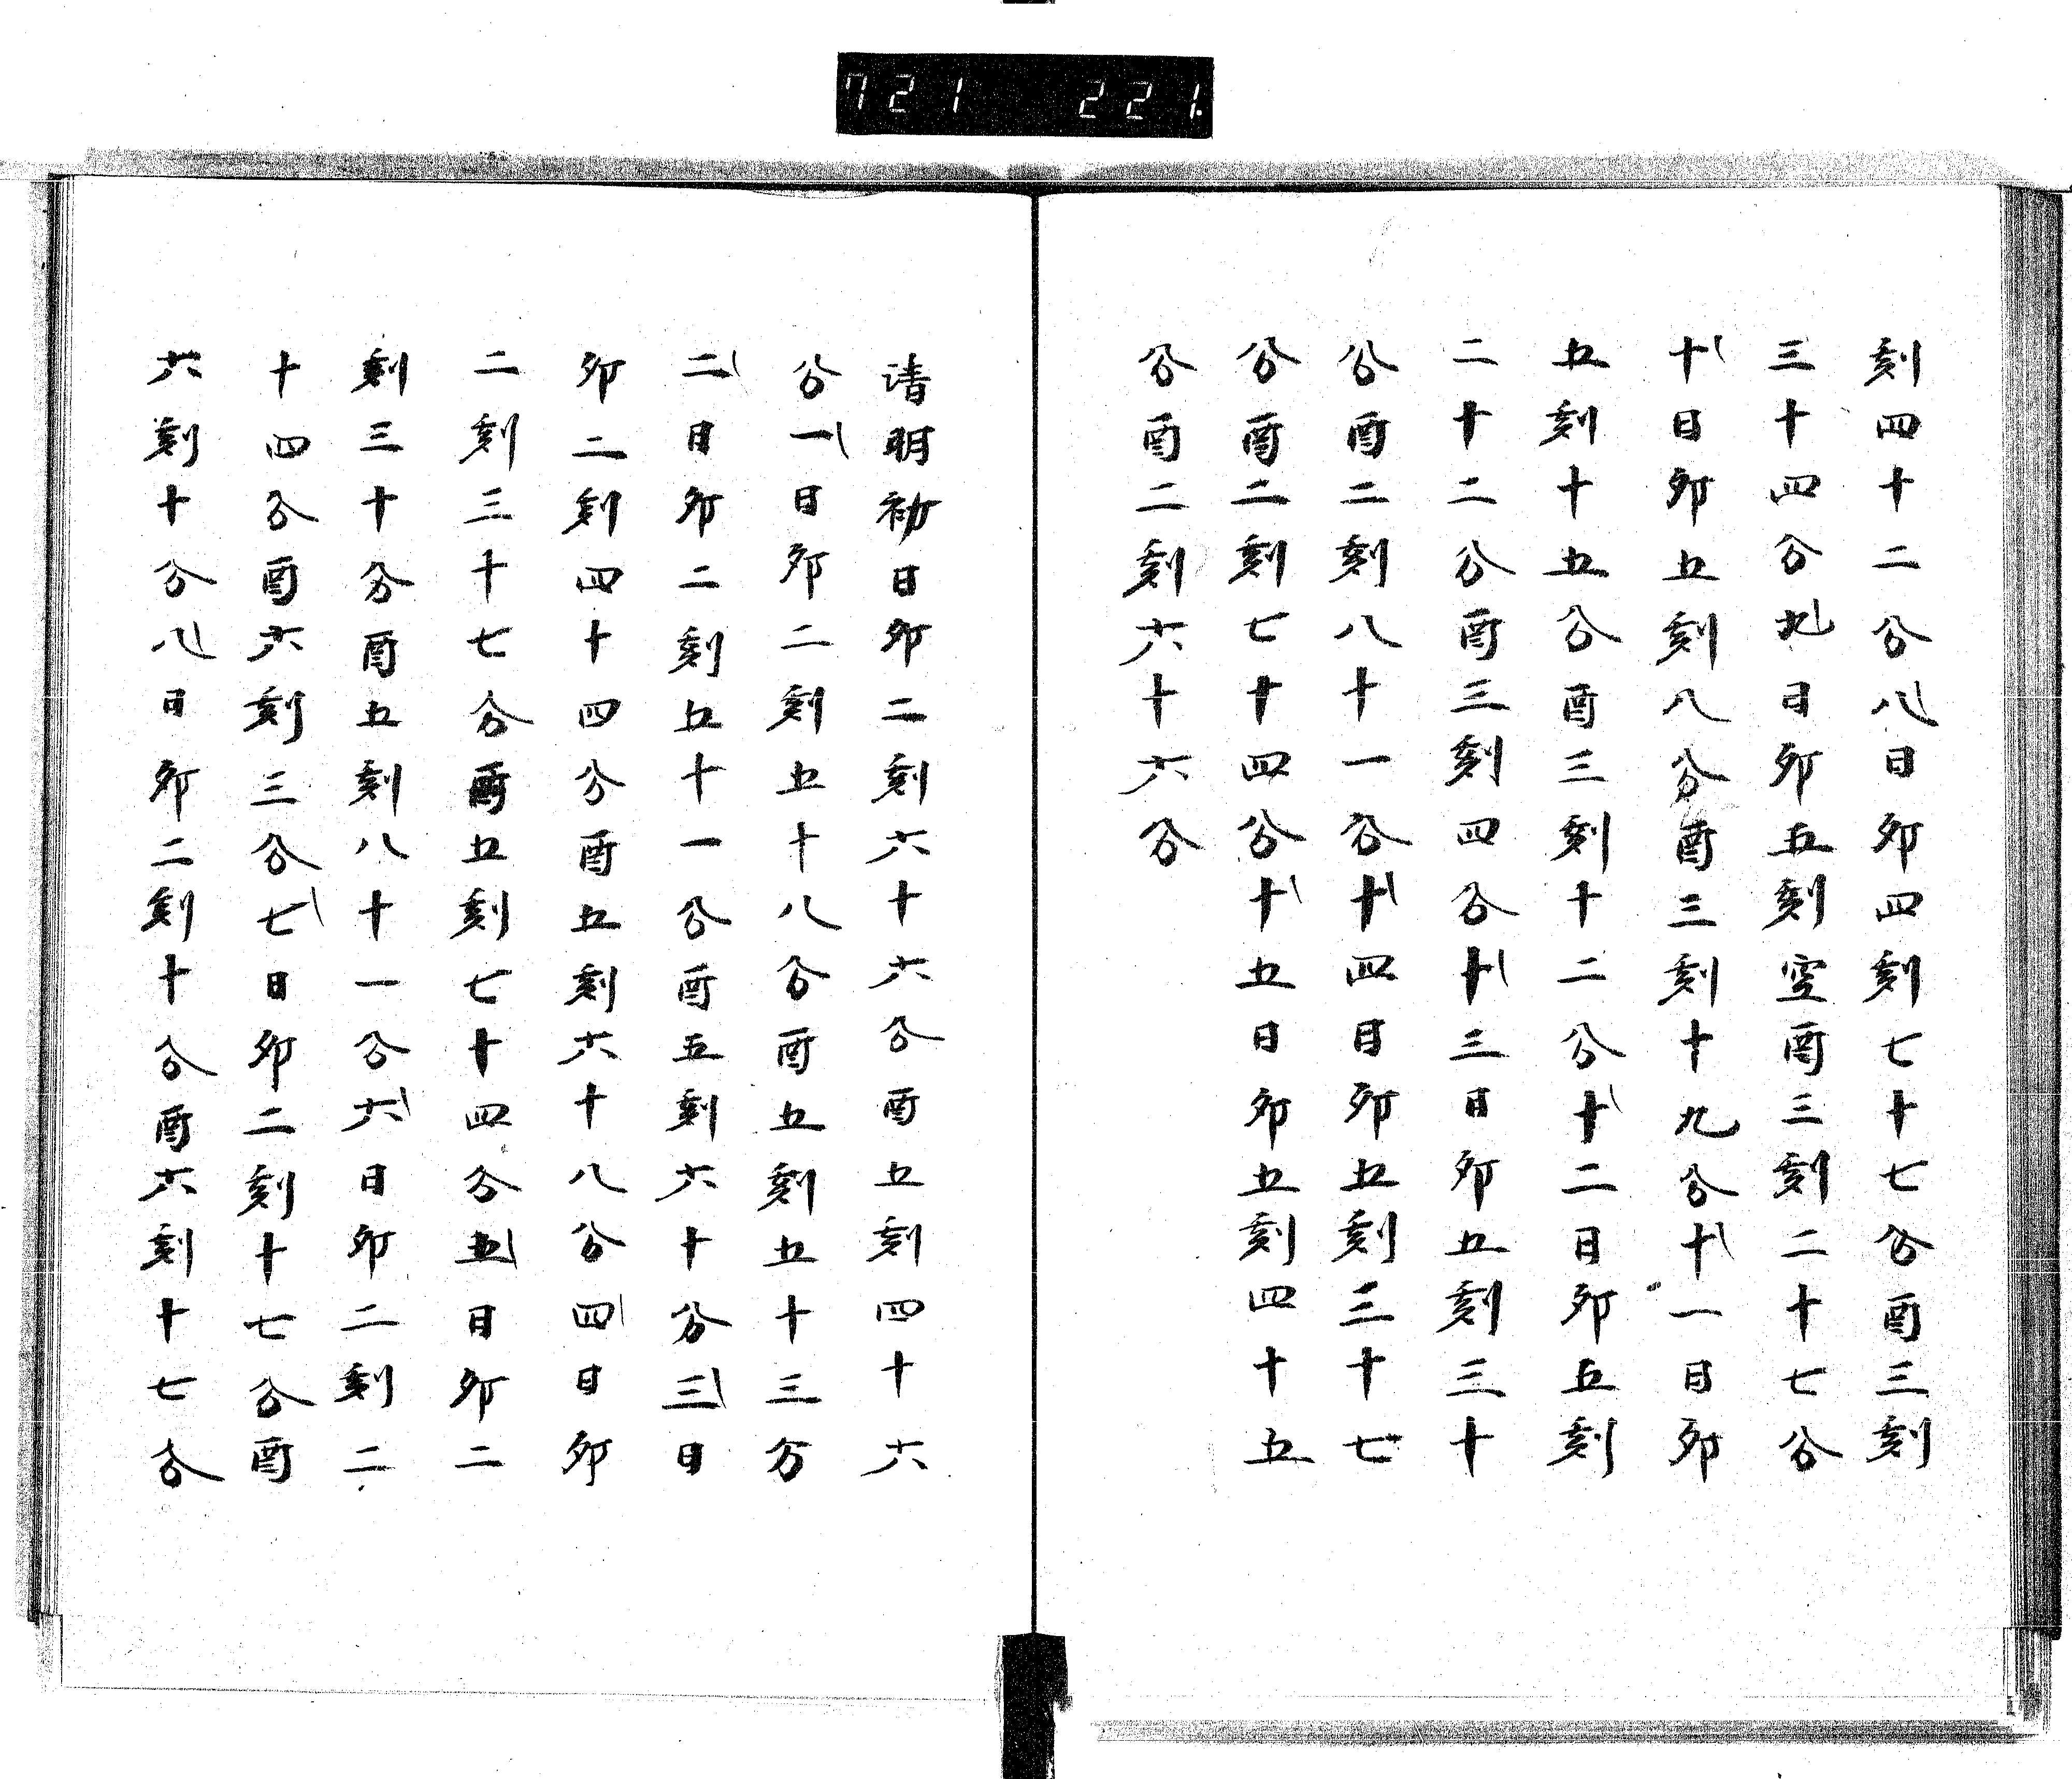 721 221.
刻四十二分八日卯四刻七十七分酉三刻
三十四分九日卯五刻空酉三刻二十七分
十日卯五刻八分酉三刻十九分十一日卯
五刻十五分酉三刻十二分十二日卯五刻
二十二分酉三刻四分十三日卯五刻三十
分酉二刻八十一分十四日卯五刻三十七
分酉二刻七十四分十五日卯五刻四十五
分酉二刻六十六分
请明初日卯二刻六十六分酉五刻四十六
分一日卯二刻五十八分酉五刻五十三分
二日卯二刻五十一分酉五刻六十分三日
卯二刻四十四分酉五刻六十八分四日卯
二刻三十七分酉五刻七十四分五日卯二
刻三十分酉五刻八十一分六日卯二刻二
十四分酉六刻三分七日卯二刻十七分酉
六刻十分八日卯二刻十分酉六刻十七分